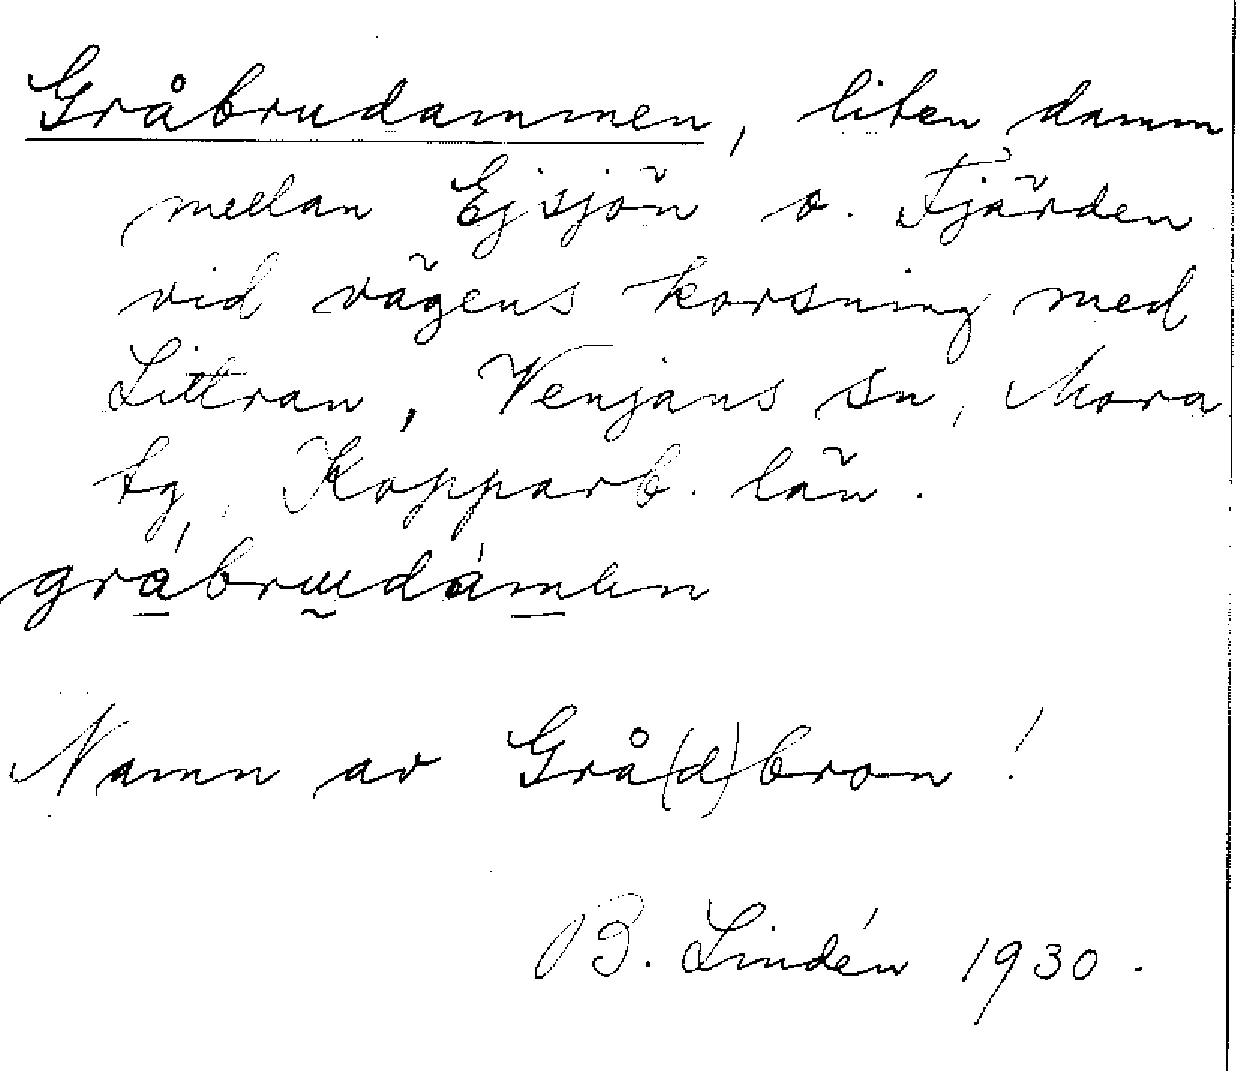 Gråbrudammen, liten damm
mellan Ejsjön o. Fjärden
vid vägens korsning med
Littran, Venjans sn, Mora
tg, Kopparb. län.
Namn av Grå(d)bron!
B. Lindén 1930.